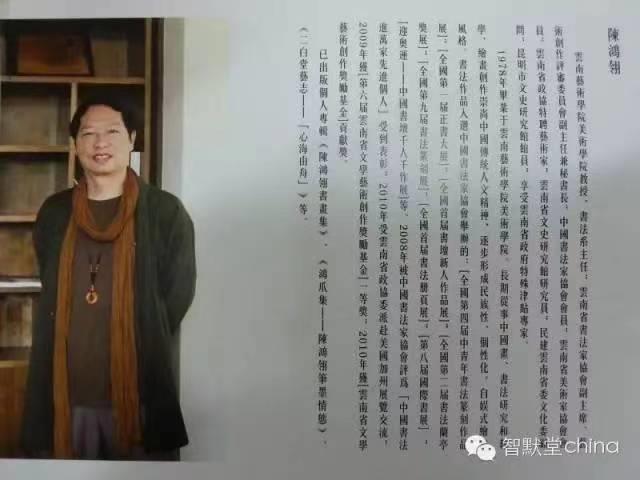 陳鴻翎
雲南藝術學院美術學院教授、書法系主任,雲南省書法家協會副主席、
術創作評審委員會副主任兼秘書長、中國書法家協會會員,雲南省美術家協會
員,雲南省政協特聘藝術家,雲南省文史研究館研究員,民建雲南省委文化委
問,昆明市文史研究館館員,享受雲南省政府特殊津貼專家。
1978年畢業于雲南藝術學院美術學院。長期從事中國畫、書法研究和
學,繪畫創作崇尚中國傳統人文精神,逐步形成民族性、個性化、自娛式繪
風格。書法作品入選中國書法家協會舉辦的:[全國第四届中青年書法篆刻作品
展],[全國第一届正書大展],[全國首届書壇新人作品展],[全國第二届書法蘭亭
獎展],[全國第九届書法篆刻展],[全國首届書法册頁展],[第八届國際書展],
[迎奥運——中國書壇千人千作展]等。2008年被中國書法家協會評爲「中國書法
進萬家先進個人」受到表彰。2010年受雲南省政協委派赴美國加州展覽交流,
2009年獲[第六届雲南省文學藝術創作獎勵基金]二等獎;2010年獲[雲南省文學
藝術創作獎勵基金]貢獻獎。
已出版個人專輯《陳鴻翎書畫集》、《鴻爪集——陳鴻翎筆墨情態》、
《二白堂藝志——「心海由舟」》等。
智默堂china